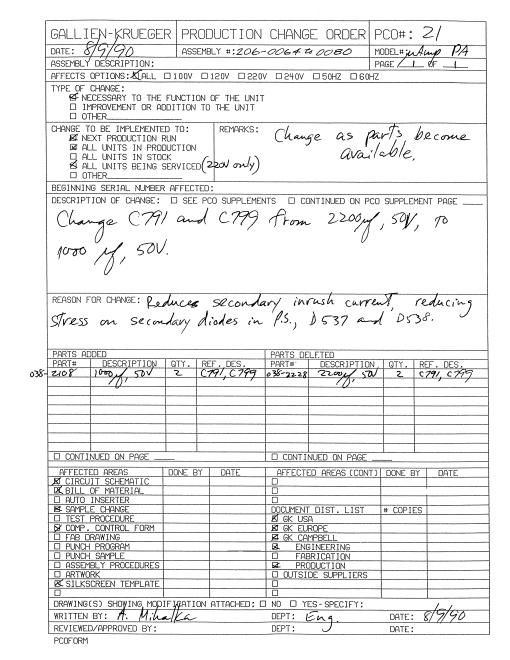 GALLIEN-KRUEGER PRODUCTION CHANGE ORDER PCO#: 21
DATE: 8/9/90 ASSEMBLY #: 206-0064 to 0080 MODEL# PA
ASSEMBLY DESCRIPTION: PAGE 1 OF 1
AFFECTS OPTIONS: ☒ALL ☐100V ☐120V ☐220V ☐240V ☐50HZ ☐60HZ
TYPE OF CHANGE:
☒ NECESSARY TO THE FUNCTION OF THE UNIT
☐ IMPROVEMENT OR ADDITION TO THE UNIT
☐ OTHER
CHANGE TO BE IMPLEMENTED TO:
☒ NEXT PRODUCTION RUN
☒ ALL UNITS IN PRODUCTION
☐ ALL UNITS IN STOCK
☒ ALL UNITS BEING SERVICED (220V only)
☐ OTHER
REMARKS: Change as parts become
available.
BEGINNING SERIAL NUMBER AFFECTED:
DESCRIPTION OF CHANGE: ☐ SEE PCO SUPPLEMENTS ☐ CONTINUED ON PCO SUPPLEMENT PAGE
Change C791 and C799 from 2200µf, 50V, to
1000 µf, 50V.
REASON FOR CHANGE: Reduces secondary inrush current, reducing
stress on secondary diodes in P.S., D537 and D538.
PARTS ADDED PARTS DELETED
PART# DESCRIPTION QTY. REF. DES. PART# DESCRIPTION QTY. REF. DES.
038-2108 1000µf, 50V 2 C791, C799 038-2228 2200µf, 50V 2 C791, C799
☐ CONTINUED ON PAGE ☐ CONTINUED ON PAGE
AFFECTED AREAS DONE BY DATE AFFECTED AREAS (CONT) DONE BY DATE
☒ CIRCUIT SCHEMATIC ☐
☒ BILL OF MATERIAL ☐
☐ AUTO INSERTER ☐
☒ SAMPLE CHANGE ☐
☐ TEST PROCEDURE DOCUMENT DIST. LIST # COPIES
☒ COMP. CONTROL FORM ☒ GK USA
☐ FAB DRAWING ☒ GK EUROPE
☐ PUNCH PROGRAM ☒ GK CAMPBELL
☐ PUNCH SAMPLE ☒ ENGINEERING
☐ ASSEMBLY PROCEDURES ☐ FABRICATION
☐ ARTWORK ☒ PRODUCTION
☒ SILKSCREEN TEMPLATE ☐ OUTSIDE SUPPLIERS
☐ ☐
DRAWING(S) SHOWING MODIFICATION ATTACHED: ☐ NO ☐ YES-SPECIFY:
WRITTEN BY: A. Mihalka DEPT: Eng. DATE: 8/9/90
REVIEWED/APPROVED BY: DEPT: DATE:
PCOFORM